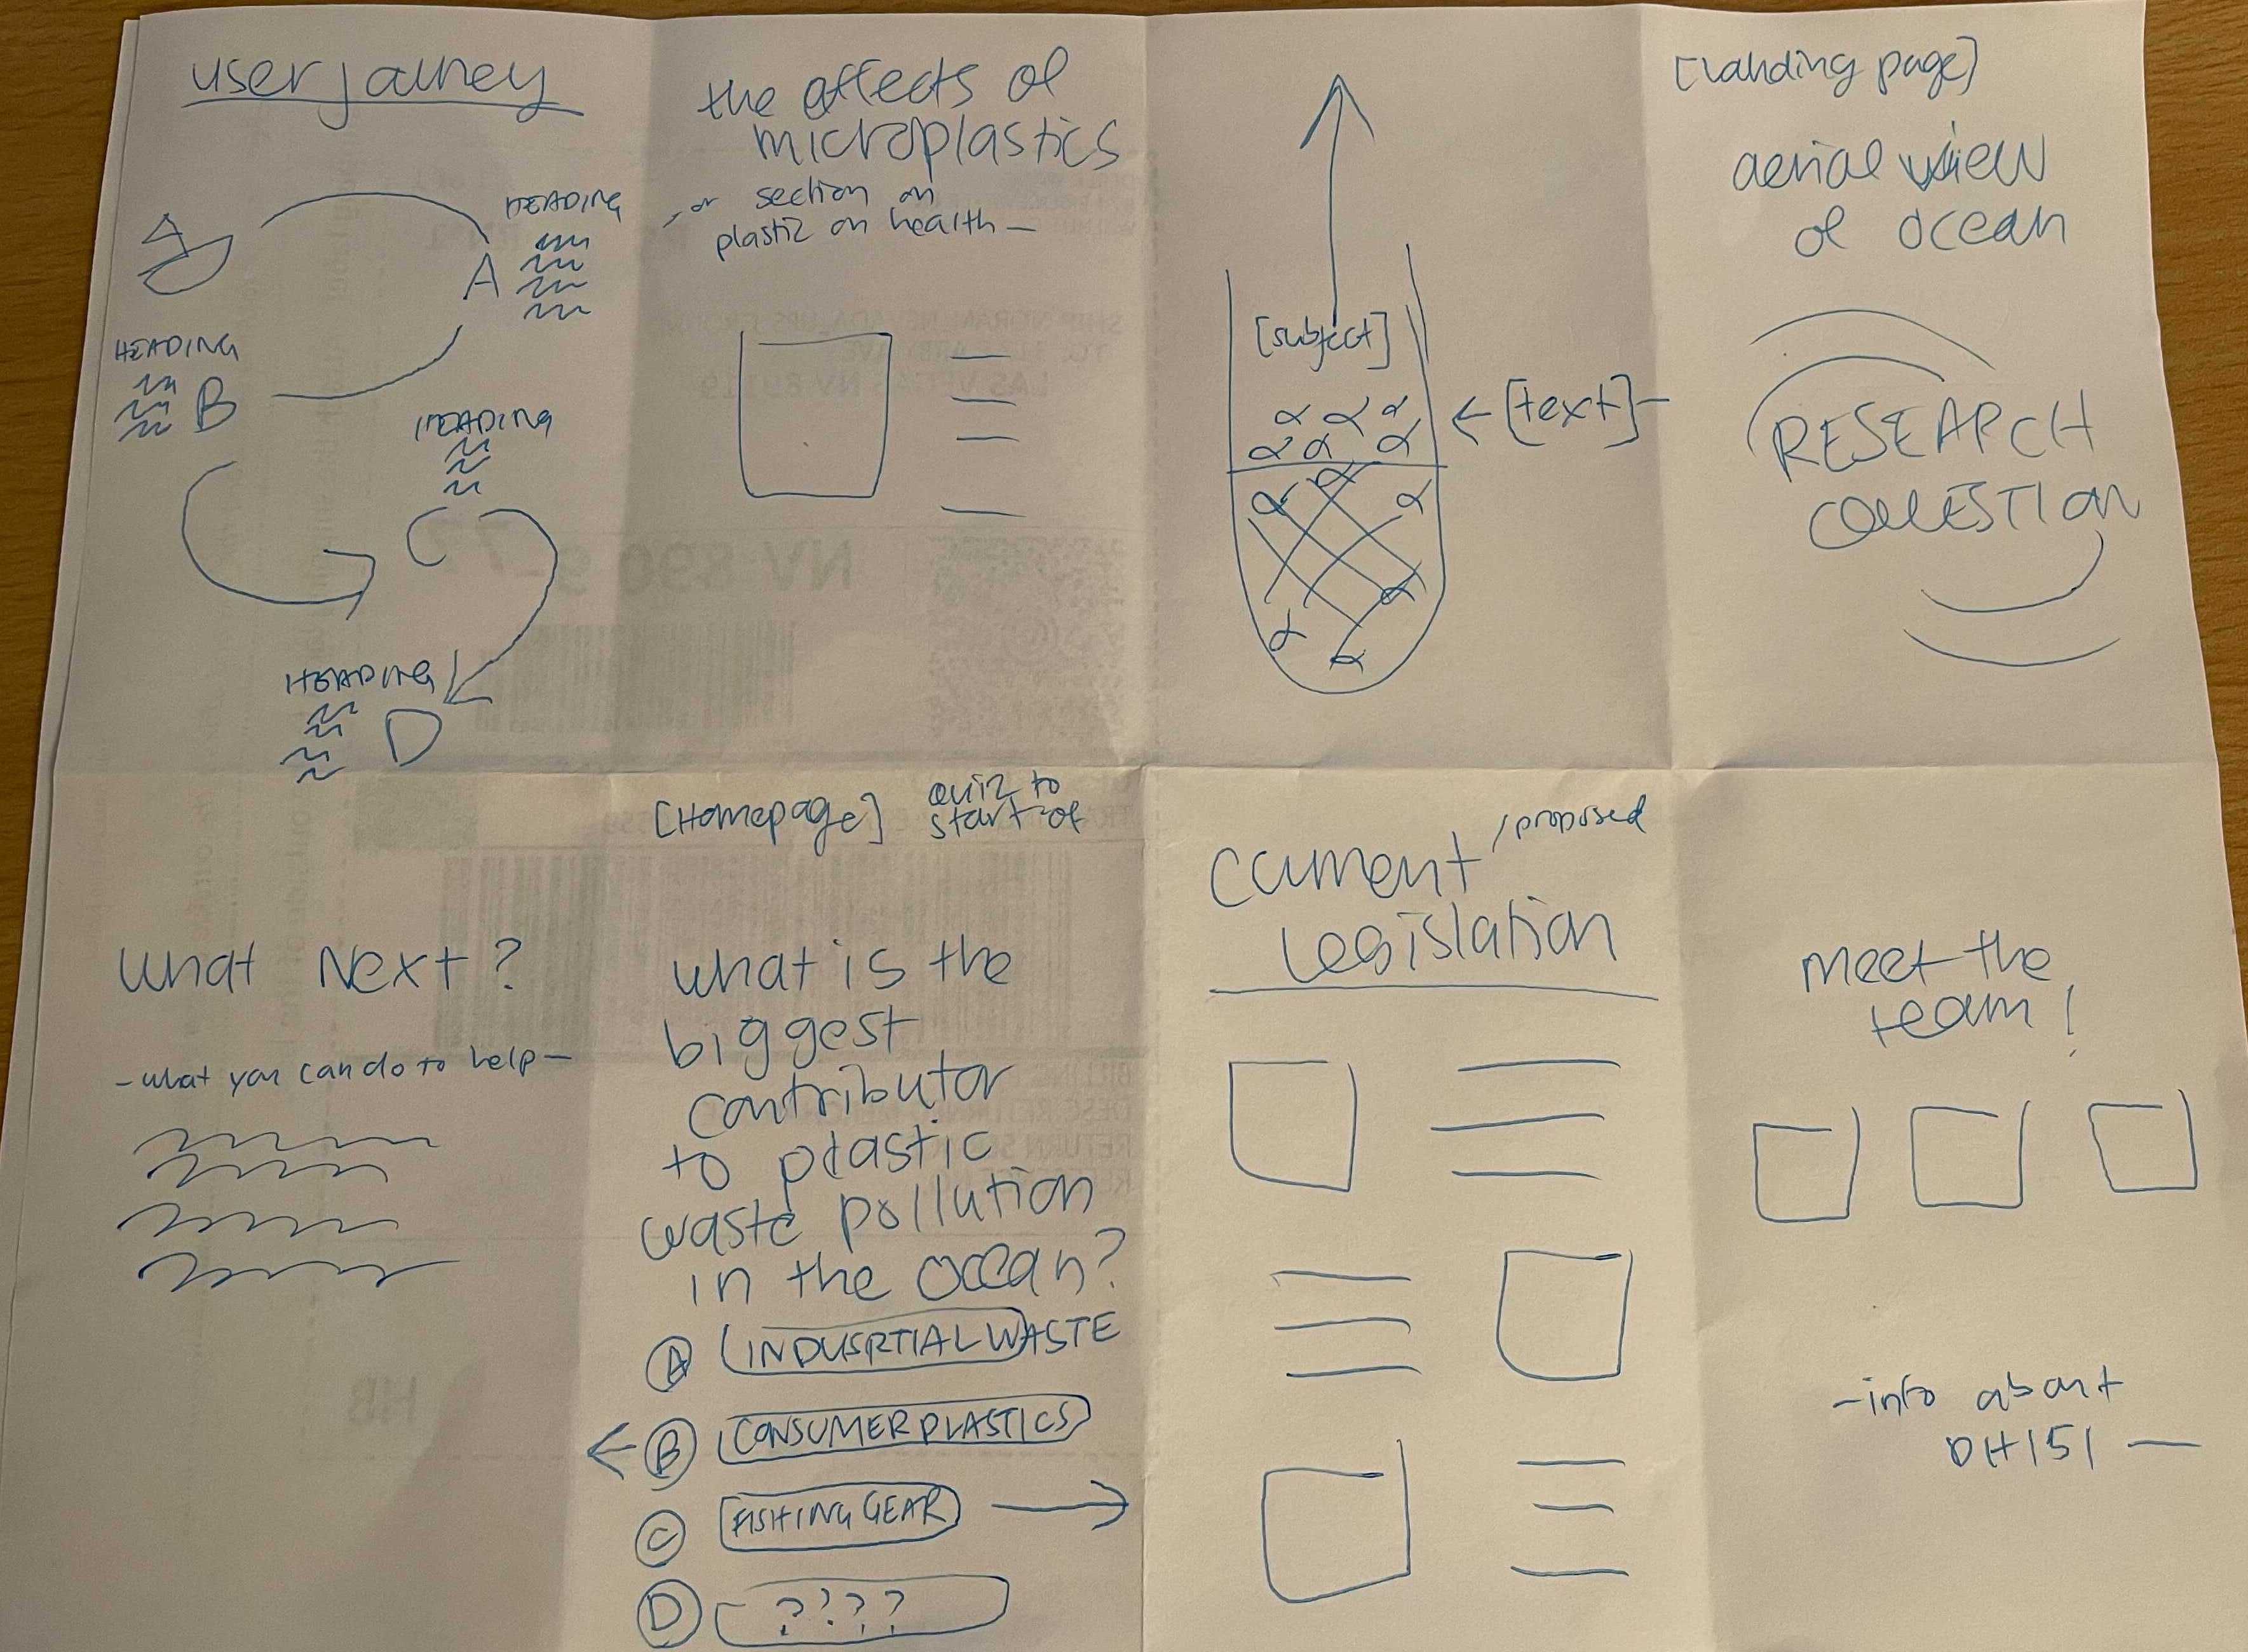 user journey
HEADING
A
HEADING
B
HEADING
C
HEADING
D
the effects of
microplastics
- or section on
plastic on health -
[subject]
← [text] -
[landing page]
aerial view
of ocean
RESEARCH
QUESTION
What Next?
- what you can do to help -
[Homepage]
quiz to
start of
what is the
biggest
contributor
to plastic
waste pollution
in the ocean?
A INDUSRTIAL WASTE
← B CONSUMER PLASTICS
C FISHING GEAR →
D ????
current / proposed
Legislation
meet the
team!
- info about
DH151 -